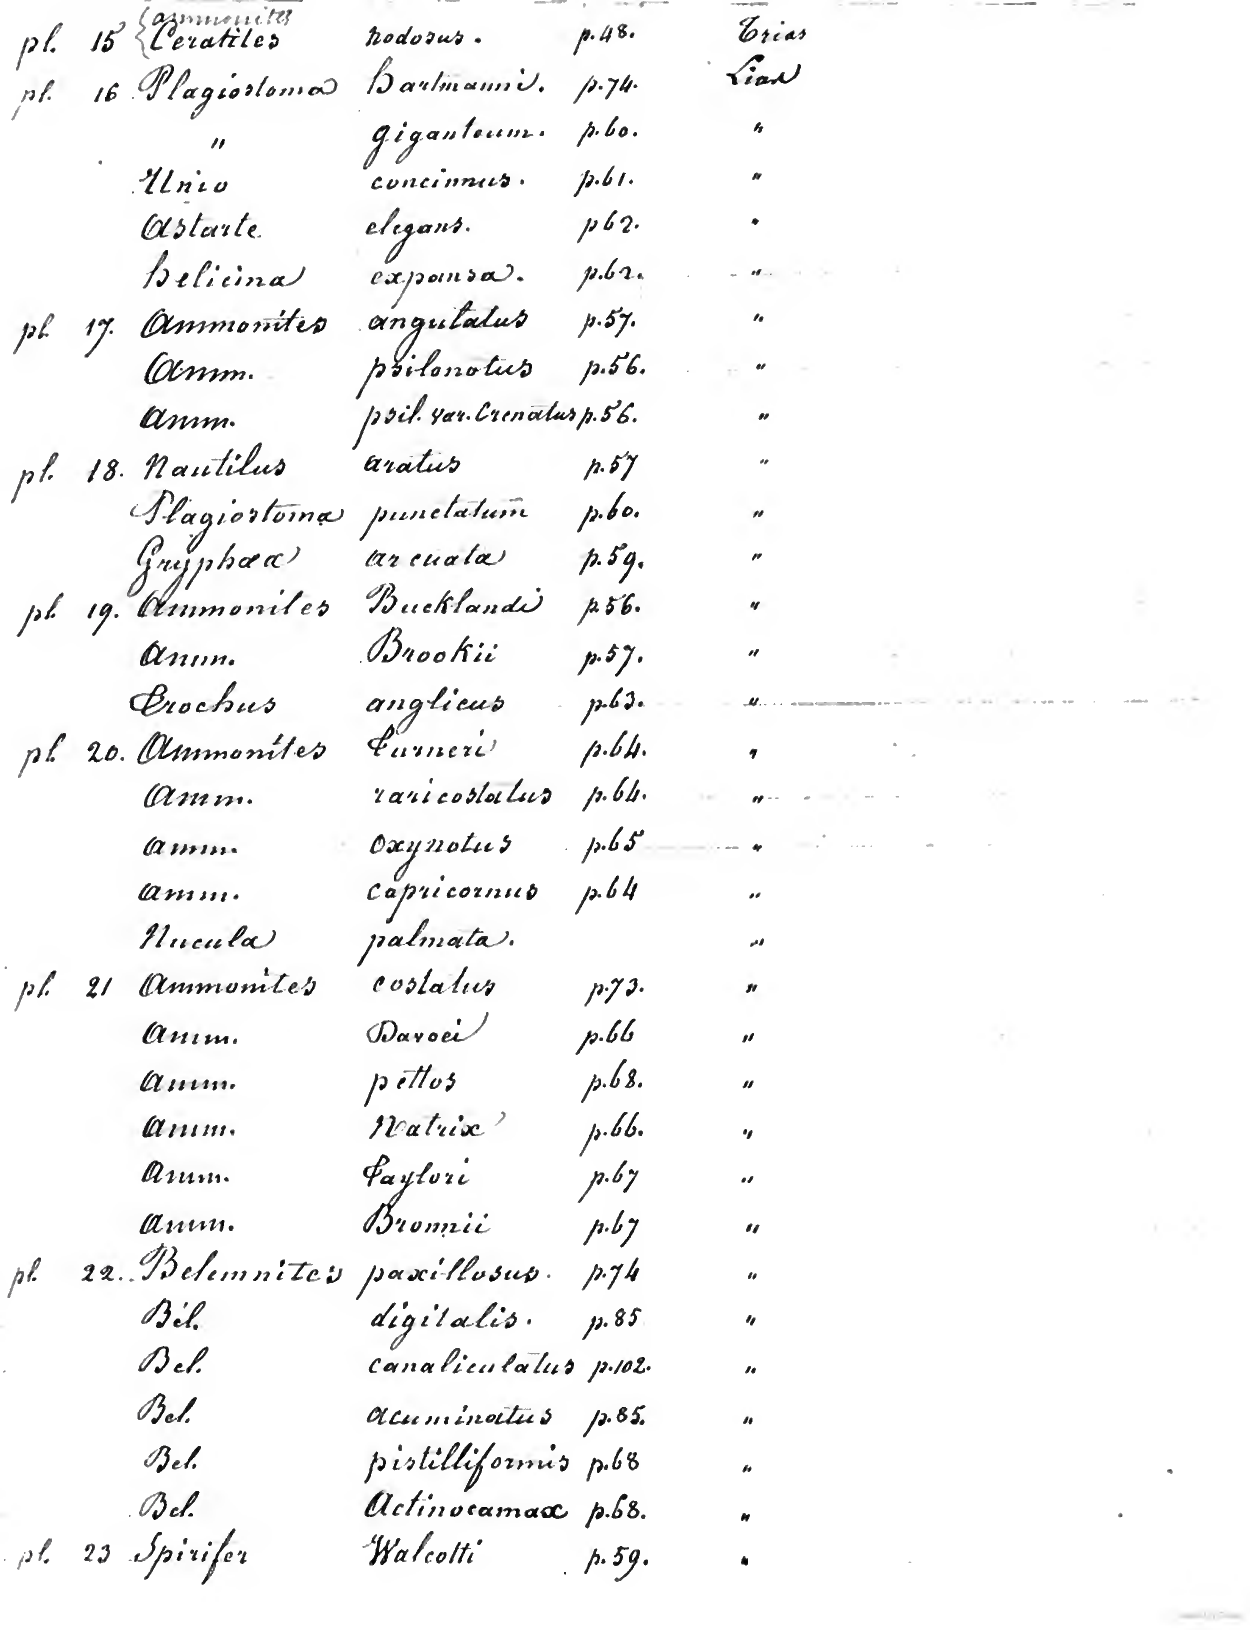 {ammonites
pl. 15 {Ceratites nodosus. p.48. Trias
pl. 16 Plagiostoma Hartmanni. p.74. Lias
" giganteum. p.60. "
Unio concinnus. p.61. "
Astarte elegans. p62. "
Helicina expansa. p.62. "
pl. 17. Ammonites angulatus p.57. "
Amm. psilonotus p.56. "
Amm. psil. var. Crenatus p.56. "
pl. 18. Nautilus aratus p.57 "
Plagiostoma punctatum p.60. "
Gryphæa arcuata p.59. "
pl. 19. Ammonites Bucklandi p.56. "
Amm. Brookii p.57. "
Trochus anglicus p.63. "
pl. 20. Ammonites Turneri p.64. "
Amm. raricostatus p.64. "
Amm. oxynotus p.65 "
Amm. capricornus p.64 "
Nucula palmata. "
pl. 21 Ammonites costatus p.73. "
Amm. Davoei p.66 "
Amm. pettos p.68. "
Amm. Natrix p.66. "
Amm. Taylori p.67 "
Amm. Bronnii p.67 "
pl. 22. Belemnites paxillosus. p.74 "
Bel. digitalis. p.85 "
Bel. canaliculatus p.102. "
Bel. acuminatus p.85. "
Bel. pistilliformis p.68 "
Bel. Actinocamax p.68. "
pl. 23 Spirifer Walcotti p.59. "